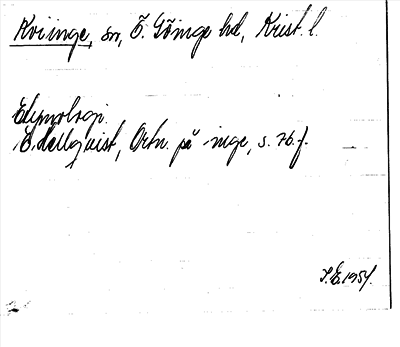 Kviinge, sn, Ö. Göinge hd, Krist. l.
Etymologi.
E. Hellquist, Ortn. på -inge, s. 76. f.
I.E. 1951.